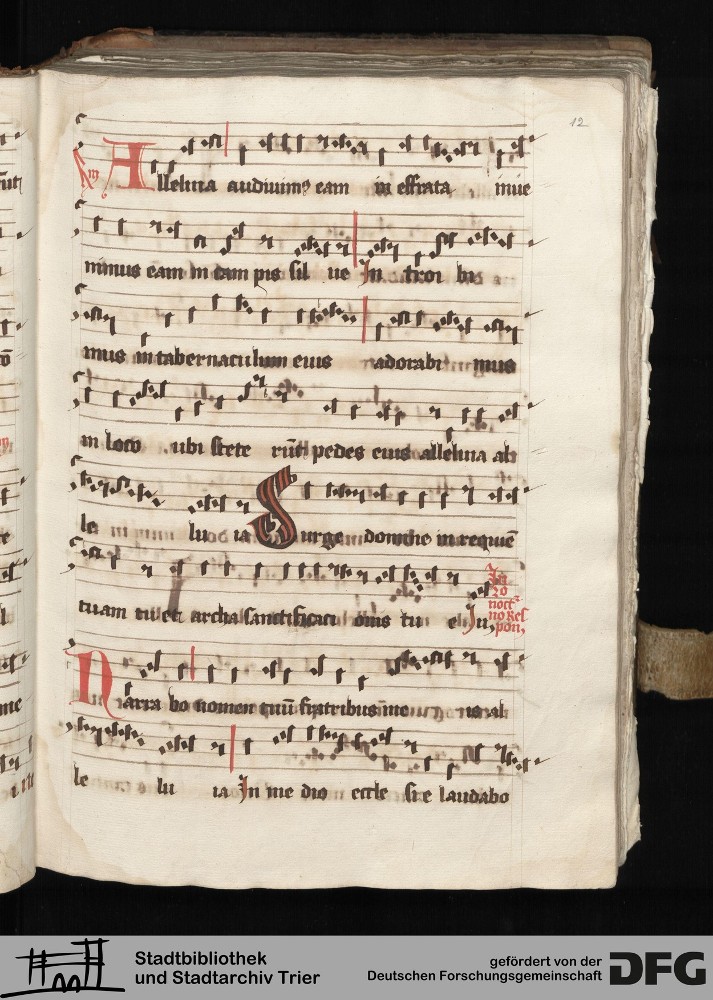 12
Alleluia audiuimus eam in effrata inue
nimus eam in cam pis sil ue In troi bi
mus in tabernaculum eius adorabi mus
in loco ubi stete rūt pedes eius alleluia al
le lu ia Surge domine in requiē
tuam tu et archa sanctificati onis tu e In
In
noct
no Res
pon,
Narra bo nomen tuū fratribus me is al
le lu ia In me dio eccle sie laudabo
Stadtbibliothek
und Stadtarchiv Trier
gefördert von der
Deutschen Forschungsgemeinschaft
DFG